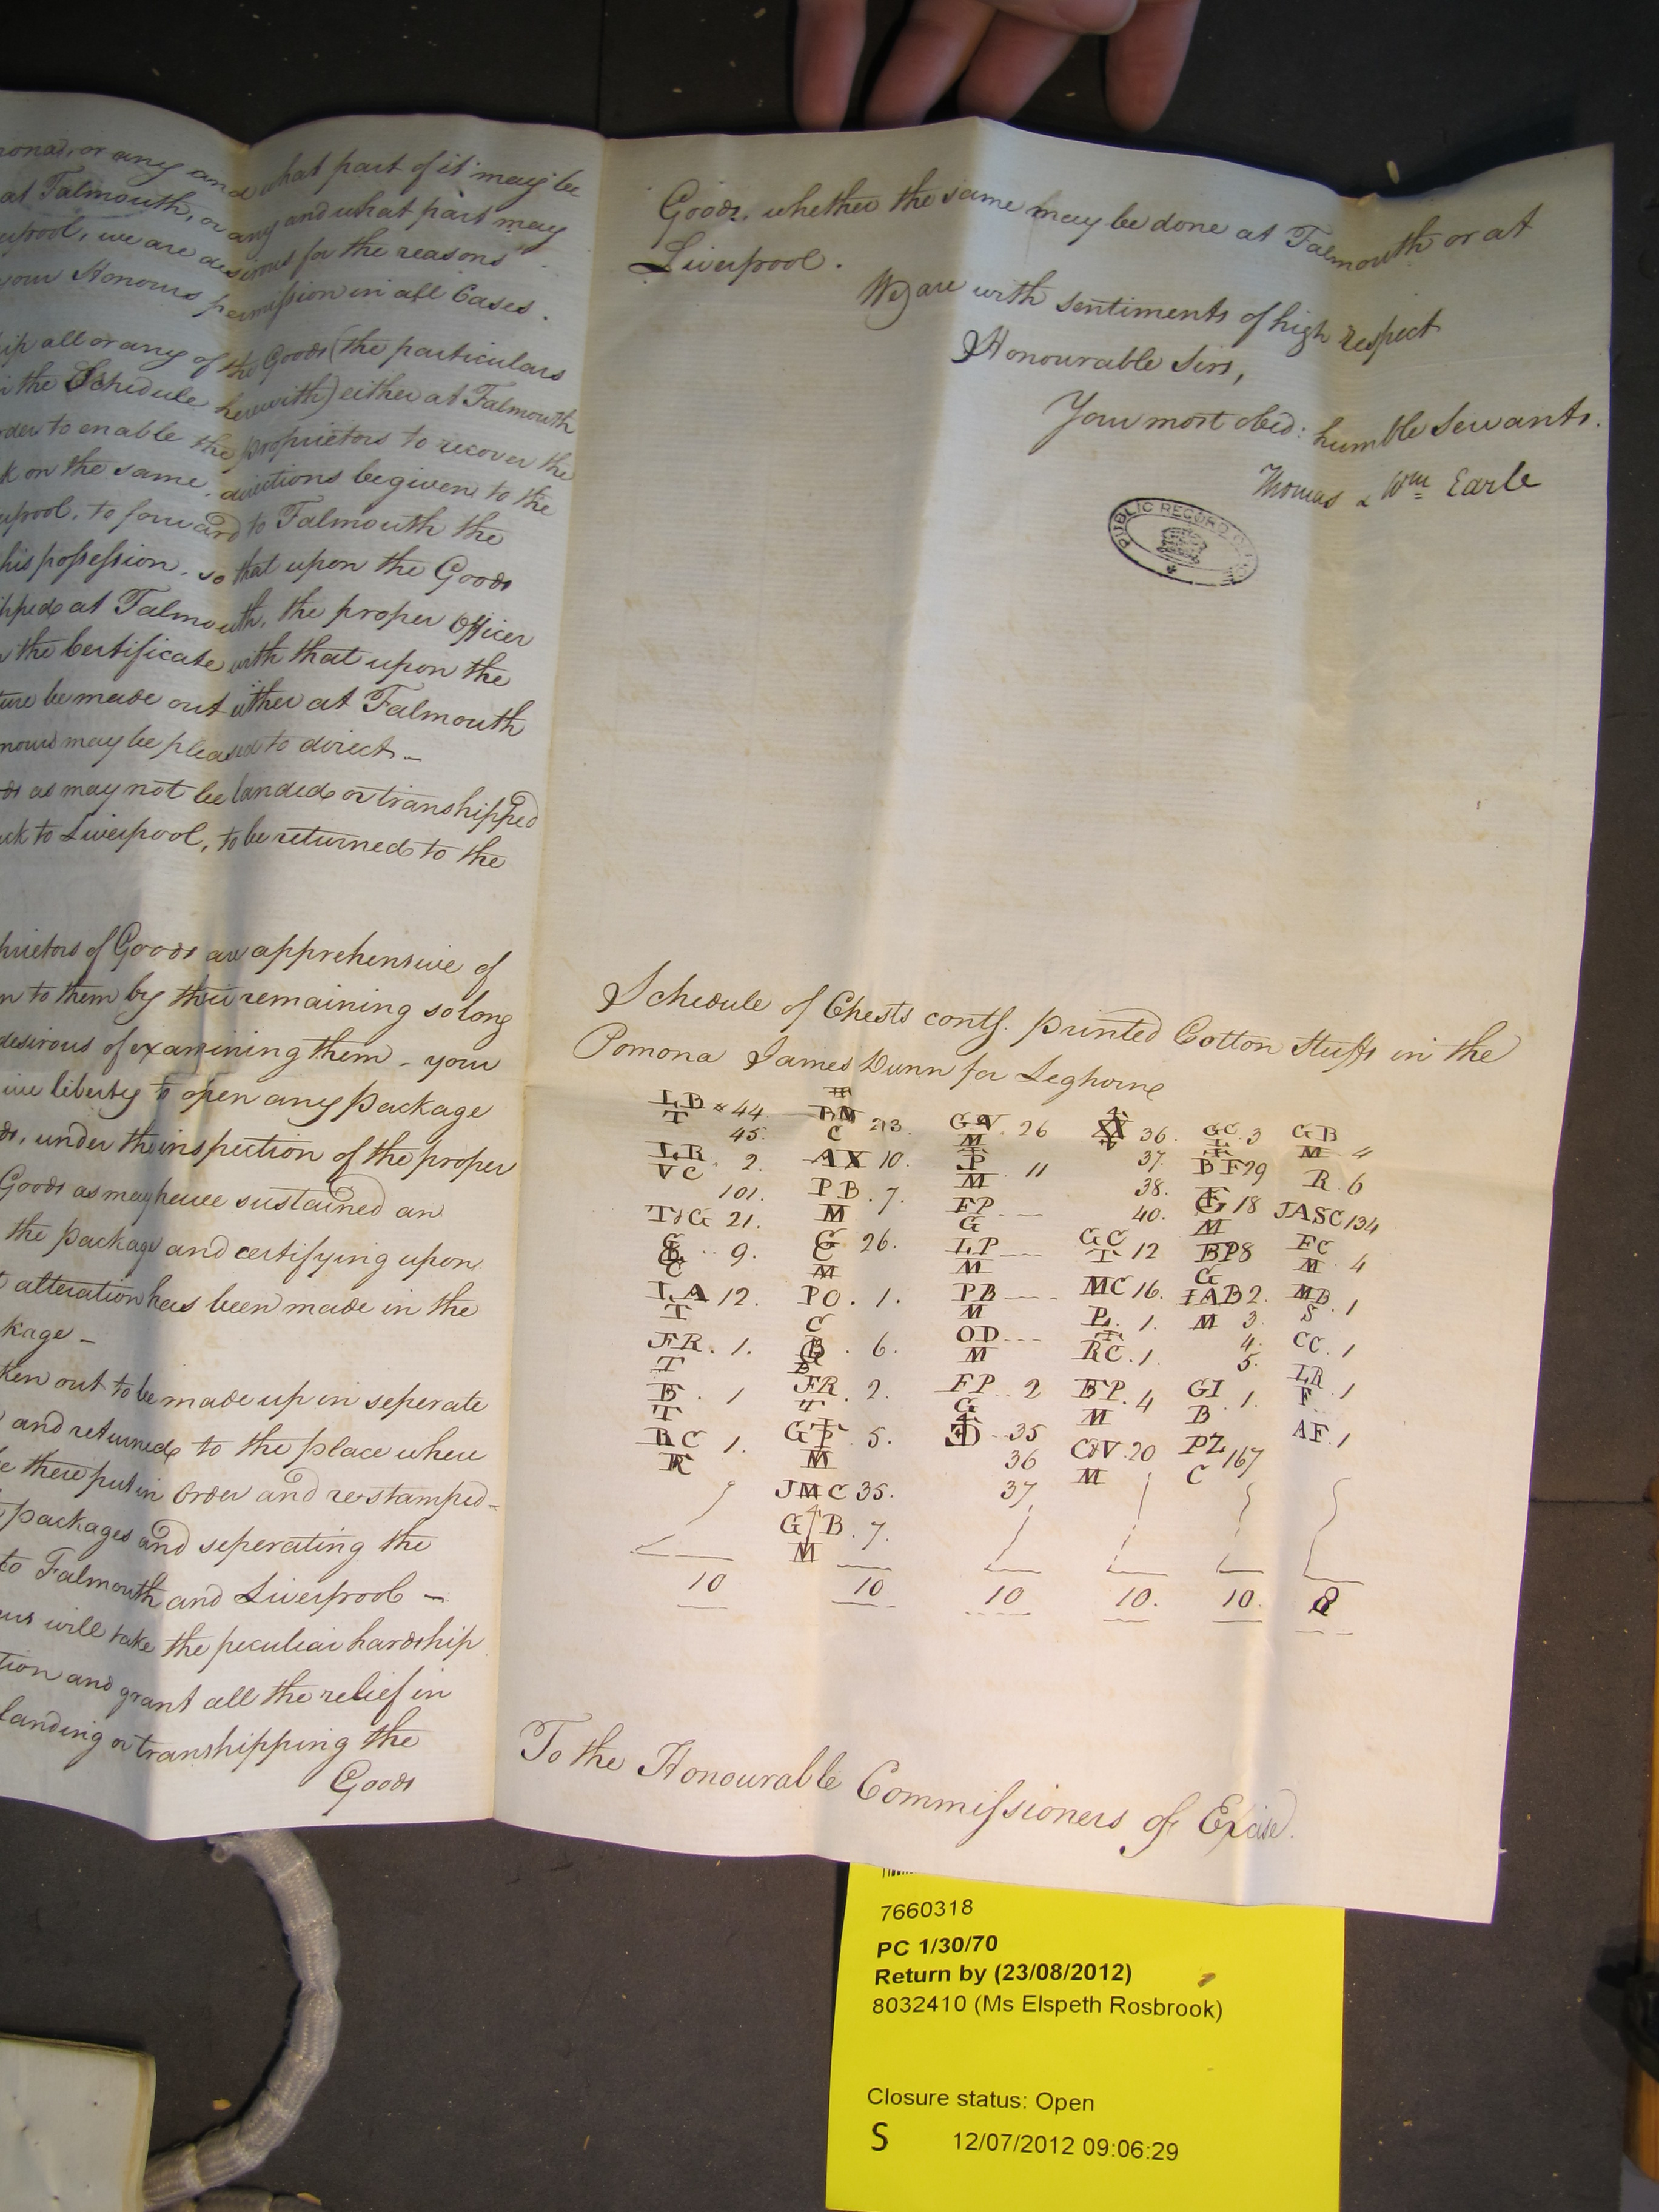 ona, or any and what part of it may be
at Falmouth, or any and what part may
erpool, we are desirous for the reasons
your Honours permission in all Cases.
ip all or any of the Goods (the particulars
in the Schedule herewith) either at Falmouth
rder to enable the proprietors to recover the
k on the same, directions be given to the
erpool, to forward to Falmouth the
his possession, so that upon the Goods
ipped at Falmouth, the proper Officer
the Certificate with that upon the
ture be made out either at Falmouth
nours may be pleased to direct –
ds as may not be landed or transhipped
ck to Liverpool, to be returned to the
prietors of Goods are apprehensive of
n to them by their remaining so long
desirous of examining them – your
ive liberty to open any package
ds, under the inspection of the proper
Goods as may have sustained an
the package and certifying upon
alteration has been made in the
kage –
ken out to be made up in seperate
and returned to the place where
e there put in Order and restamped –
packages and seperating the
to Falmouth and Liverpool –
urs will take the peculiar hardship
tion and grant all the relief in
landing or transhipping the
Goods
Goods, whether the same may be done at Falmouth or at
Liverpool.
We are with sentiments of high respect
Honourable Sirs,
Your most obed: humble Servants.
Thomas & Wm Earle
PUBLIC RECORD OFFICE
Schedule of Chests contg. printed Cotton Stuffs in the
Pomona James Dunn for Leghorne
LB T 44. C 23. M 26 36. GC 3 GB M 4
45. AX 10. P M 11 37. BF 29 R. 6
LR VC 2. PB M 7. FP G 38. G M 18 JASC 134
101. G C M 26. LP M 40. BP G 8 FC M 4
T&G 21. PO C 1. PB M GC T 12 IAB M 2. MB S 1
9. 6. OD M MC 16. 3. CC. 1
LA T 12. FR T 2. FP G 2 1. 4. LR F 1
FR T 1. M 5. 35 RC. 1 5. AF. 1
B T 1 JMC 35. 36 BP M 4 GI B 1.
BC R 1. GB M 7. 37 M 20 PZ C 167
10 10 10 10. 10. 8
To the Honourable Commissioners of Excise.
7660318
PC 1/30/70
Return by (23/08/2012)
8032410 (Ms Elspeth Rosbrook)
Closure status: Open
S 12/07/2012 09:06:29